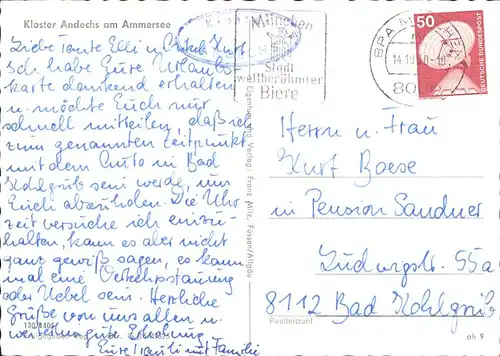 Kloster Andechs am Ammersee
Liebe Tante Elli u. Onkel Kurt,
Ich habe Eure Urlaubs-
karte dankend erhalten
u. möchte Euch nur
schnell mitteilen, daß ich
zum genannten Zeitpunkt
mit dem Auto in Bad
Kohlgrub sein werde, um
Euch abzuholen. Die Uhr-
zeit versuche ich einzu-
halten, kann es aber nicht
ganz gewiß sagen, es kann
mal eine Verkehrsstauung
oder Nebel sein. Herzliche
Grüße von uns allen u.
weiterhin gute Erholung
Eure Trauli mit Familie
Eigentum und Verlag: Franz Milz, Füssen/Allgäu
München
Stadt
weltberühmter
Biere
BPA M
14.10.80-18
80
50
DEUTSCHE BUNDESPOST
Herrn u. Frau
Kurt Boese
in Pension Sandner
Ludwigstr. 55a
8112 Bad Kohlgrub
Postleitzahl
ah 9